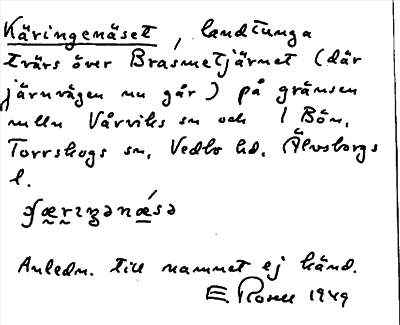 Käringenäset, landtunga
tvärs över Brasmetjärnet (där
järnvägen nu går) på gränsen
melln Vårviks sn och 1 Bön,
Torrskogs sn, Vedbo hd. Älvsborgs
l.
Anledn. till namnet ej känd.
E Rosell 1949